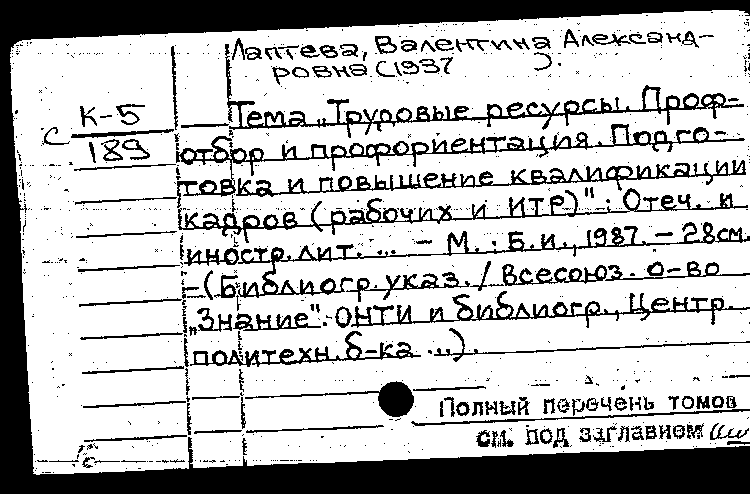 Лаптева, Валентина Александ-
ровна (1937      ).
К-5
с
189
Тема „Трудовые ресурсы. Проф-
отбор и профориентация. Подго-
товка и повышение квалификации
кадров (рабочих и ИТР)": Отеч. и
иностр. лит. ... – М. : Б.и., 1987. – 28см.
–(Библиогр. указ. / Всесоюз. о-во
„Знание". ОНТИ и библиогр., Центр.
политехн. б-ка ...).
Полный перечень томов
см. под заглавием